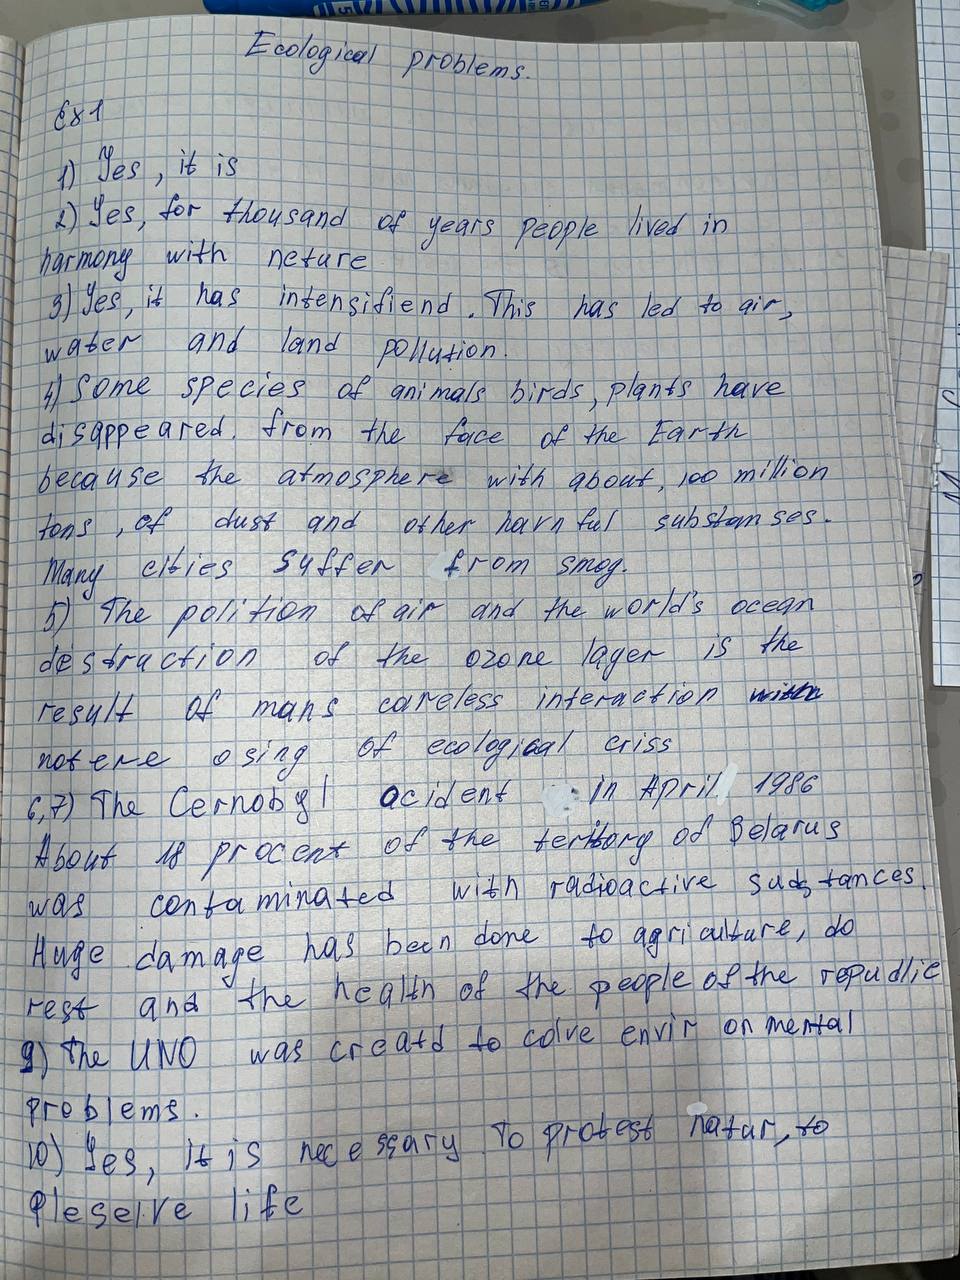 Ecological problems.
Ex1
1) Yes, it is
2) Yes, for thousand of years people lived in
harmony with neture
3) Yes, it has intensifiend. This has led to air,
water and land pollution.
4) Some species of animals birds, plants have
disappeared. from the face of the Earth
because the atmosphere with about, 100 million
tons, of dust and other harnful substanses.
Many cities suffer from smog.
5) The polition of air and the world's ocean
destraction of the ozone layer is the
result of mans careless interaction with
notere osing of ecological criss
6,7) The Cernobyl acident in April 1986
About 18 procent of the territory of Belarus
was contaminated with radioactive substances.
Huge damage has been done to agriculture, do
rest and the health of the people of the repudlic
9) The UNO was creatd to colve environmental
problems.
10) Yes, it is necessary. To protest natur, to
pleserve life